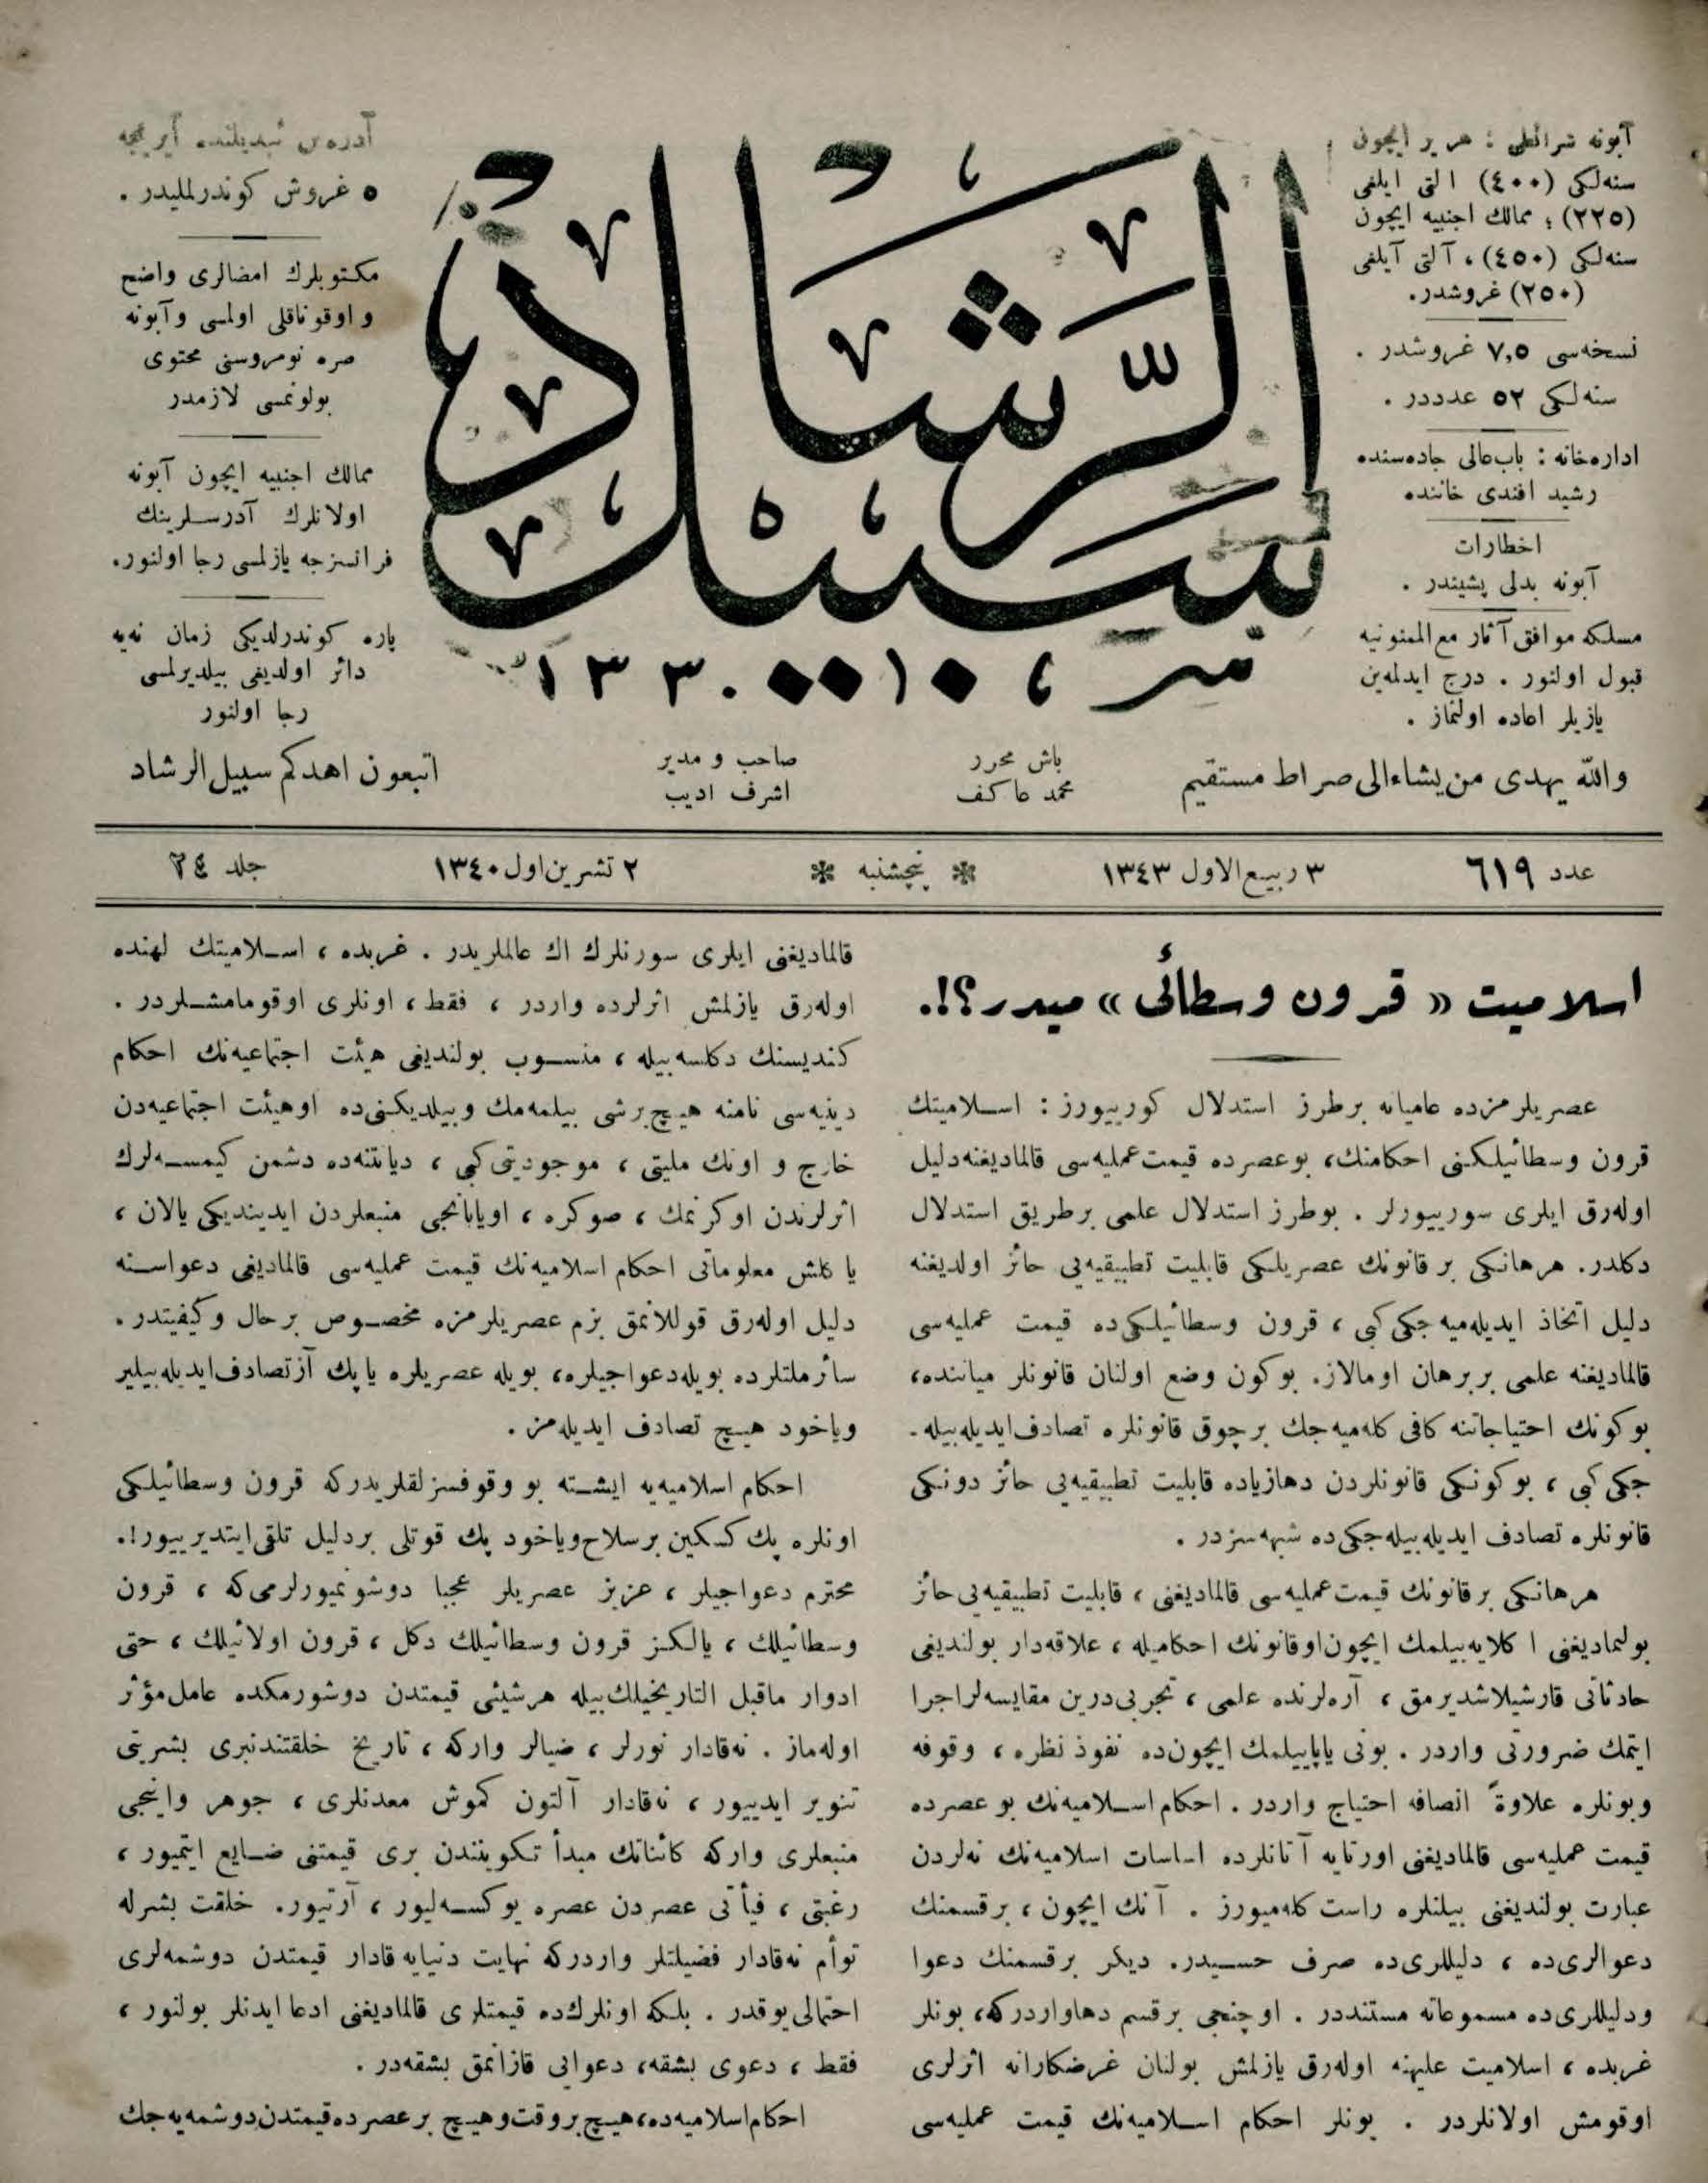 آبونه شرائطی : هر یر ایچون
سنه‌لکی (٤٠٠) التی ایلغی
(٢٢٥) ؛ ممالك اجنبیه ایچون
سنه‌لکی (٤٥٠) ، آلتی آیلغی
(٢٥٠) غروشدر.
نسخه‌سی ٧,٥ غروشدر .
سنه‌لکی ٥٢ عدددر .
اداره‌خانه : باب‌عالی جاده‌سنده
رشید افندی خاننده
اخطارات
آبونه بدلی پشیندر .
مسلکه موافق آثار مع‌الممنونیه
قبول اولنور . درج ایدلمه‌ین
یازیلر اعاده اولنماز .
سبیل الرشاد
١٣٣٠
آدره‌س تبدیلنده آیریجه
٥ غروش کوندرلملیدر .
مکتوبلرك امضالری واضح
و اوقوناقلی اولمسی و آبونه
صره نومروسنی محتوی
بولونمسی لازمدر
ممالك اجنبیه ایچون آبونه
اولانلرك آدرسلرینك
فرانسزجه یازلمسی رجا اولنور.
پاره کوندرلدیکی زمان نه‌یه
دائر اولدیغی بیلدیرلمسی
رجا اولنور
والله یهدی من یشاء الی صراط مستقیم
باش محرر
محمد عاکف
صاحب و مدیر
اشرف ادیب
اتبعون اهدکم سبیل الرشاد
عدد ٦١٩
٣ ربیع‌الاول ١٣٤٣
❊ پنچشنبه ❊
٢ تشرین‌اول ١٣٤٠
جلد ٢٤
اسلامیت « قرون وسطائی » میدر؟!.
عصریلرمزده عامیانه برطرز استدلال کورییورز : اسلامیتك
قرون وسطائیلکنی احکامنك، بوعصرده قیمت‌عملیه‌سی قالمادیغنه‌دلیل
اوله‌رق ایلری سورییورلر . بوطرز استدلال علمی برطریق استدلال
دکلدر. هرهانکی بر قانونك عصریلکی قابلیت تطبیقیه‌یی حائز اولدیغنه
دلیل اتخاذ ایدیله‌میه‌جکی‌کبی ، قرون وسطائیلکی‌ده قیمت عملیه‌سی
قالمادیغنه علمی بربرهان اومالاز. بوکون وضع اولنان قانونلر میاننده،
بوکونك احتیاجاتنه کافی کله‌میه‌جك برچوق قانونلره تصادف‌ایدیله‌بیله-
جکی‌کبی ، بوکونکی قانونلردن دهازیاده قابلیت تطبیقیه‌یی حائز دونکی
قانونلره تصادف ایدیله‌بیله‌جکی‌ده شبهه‌سزدر .
هرهانکی برقانونك قیمت‌عملیه‌سی قالمادیغنی ، قابلیت تطبیقیه‌یی حائز
بولمادیغنی اکلایه‌بیلمك ایچون‌اوقانونك احکامیله ، علاقه‌دار بولندیغی
حادثاتی قارشیلاشدیرمق ، آره‌لرنده علمی ، تجربی‌درین مقایسه‌لراجرا
ایتمك ضرورتی واردر . بونی یاپابیلمك ایچون‌ده نفوذ نظره ، وقوفه
وبونلره علاوةً انصافه احتیاج واردر . احکام‌اسلامیه‌نك بو عصرده
قیمت عملیه‌سی قالمادیغنی اورتایه آتانلرده اساسات اسلامیه‌نك نه‌لردن
عبارت بولندیغنی بیلنلره راست کله‌میورز . آنك ایچون ، برقسمنك
دعوالری‌ده ، دلیللری‌ده صرف حسیدر. دیکر برقسمنك دعوا
ودلیللری‌ده مسموعاته مستنددر . اوچنجی برقسم دهاواردرکه، بونلر
غربده ، اسلامیت علیهنه اوله‌رق یازلمش بولنان غرضکارانه اثرلری
اوقومش اولانلردر . بونلر احکام اسلامیه‌نك قیمت عملیه‌سی
قالمادیغنی ایلری سورنلرك اك عالملریدر . غربده ، اسلامیتك لهنده
اوله‌رق یازلمش اثرلرده واردر ، فقط ، اونلری اوقومامشلردر .
کندیسنك دکلسه‌بیله ، منسوب بولندیغی هیئت اجتماعیه‌نك احکام
دینیه‌سی نامنه هیچ‌برشی بیلمه‌مك وبیلدیکنی‌ده اوهیئت اجتماعیه‌دن
خارج و اونك ملیتی ، موجودیتی‌کبی ، دیانتنه‌ده دشمن کیمسه‌لرك
اثرلرندن اوکرنمك ، صوکره ، اویابانجی منبعلردن ایدیندیکی یالان ،
یاکلش معلوماتی احکام اسلامیه‌نك قیمت عملیه‌سی قالمادیغی دعواسنه
دلیل اوله‌رق قوللانمق بزم عصریلرمزه مخصوص برحال وکیفیتدر.
سائرملتلرده بویله‌دعواجیلره، بویله عصریلره یا پك آزتصادف‌ایدیله‌بیلیر
ویاخود هیچ تصادف ایدیله‌مز .
احکام اسلامیه‌یه ایشته بو وقوفسزلقلریدرکه قرون وسطائیلکی
اونلره پك کسکین برسلاح‌ویاخود پك قوتلی بردلیل تلقی‌ایتدیرییور!.
محترم دعواجیلر ، عزیز عصریلر عجبا دوشونمیورلرمی‌که ، قرون
وسطائیلك ، یالکز قرون وسطائیلك دکل ، قرون اولائیلك ، حتی
ادوار ماقبل التاریخیلك‌بیله هرشیئی قیمتدن دوشورمکده عامل‌مؤثر
اوله‌ماز . نه‌قادار نورلر ، ضیالر وارکه ، تاریخ خلقتندنبری بشریتی
تنویر ایدییور ، نه‌قادار آلتون کموش معدنلری ، جوهر واینجی
منبعلری وارکه کائناتك مبدأ تکویندن بری قیمتنی ضایع ایتمیور ،
رغبتی ، فیأتی عصردن عصره یوکسه‌لیور ، آرتیور. خلقت بشرله
توأم نه‌قادار فضیلتلر واردرکه نهایت دنیایه قادار قیمتدن دوشمه‌لری
احتمالی‌یوقدر . بلکه اونلرك‌ده قیمتلری قالمادیغنی ادعا ایدنلر بولنور ،
فقط ، دعوی بشقه، دعوایی قازانمق بشقه‌در .
احکام‌اسلامیه‌ده، هیچ‌بروقت‌وهیچ برعصرده‌قیمتدن‌دوشمه‌یه‌جك